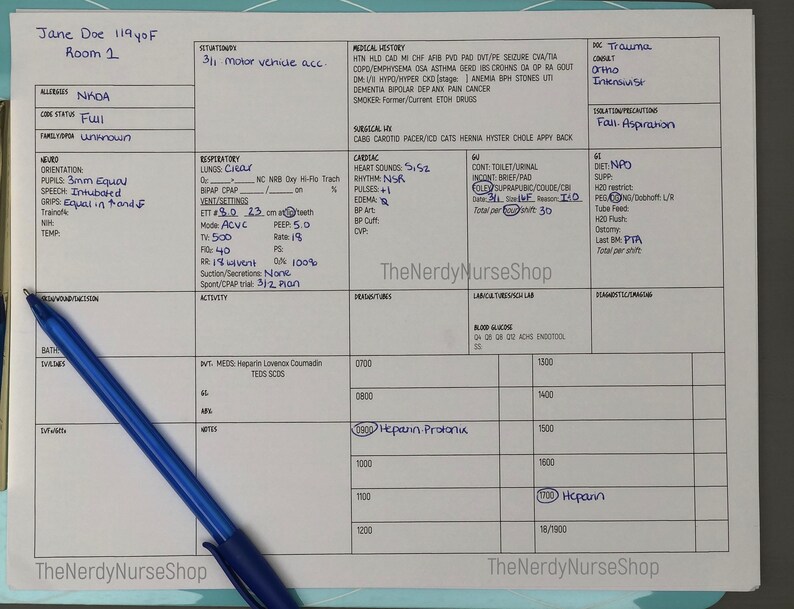 Jane Doe 119yoF
Room 1
ALLERGIES NKDA
CODE STATUS Full
FAMILY/DPOA unknown
SITUATION/DX
3/1 motor vehicle acc.
MEDICAL HISTORY
HTN HLD CAD MI CHF AFIB PVD PAD DVT/PE SEIZURE CVA/TIA
COPD/EMPHYSEMA OSA ASTHMA GERD IBS CROHNS OA OP RA GOUT
DM: I/II HYPO/HYPER CKD [stage: ] ANEMIA BPH STONES UTI
DEMENTIA BIPOLAR DEP ANX PAIN CANCER
SMOKER: Former/Current ETOH DRUGS
SURGICAL HX
CABG CAROTID PACER/ICD CATS HERNIA HYSTER CHOLE APPY BACK
DOC Trauma
CONSULT
Ortho
Intensivist
ISOLATION/PRECAUTIONS
Fall. Aspiration
NEURO
ORIENTATION:
PUPILS: 3mm Equal
SPEECH: Intubated
GRIPS: Equal in ↑ and ↓
Trainof4:
NIH:
TEMP:
RESPIRATORY
LUNGS: Clear
O2: ______>______ NC NRB Oxy Hi-Flo Trach
BIPAP CPAP ______/______ on %
VENT/SETTINGS
ETT # 8.0 23 cm at lip/teeth
Mode: ACVC PEEP: 5.0
TV: 500 Rate: 18
FiO2: 40 PS:
RR: 18 w/vent O2%: 100%
Suction/Secretions: None
Spont/CPAP trial: 3/2 Plan
CARDIAC
HEART SOUNDS: S1S2
RHYTHM: NSR
PULSES: +1
EDEMA: 0
BP Art:
BP Cuff:
CVP:
GU
CONT: TOILET/URINAL
INCONT: BRIEF/PAD
FOLEY/SUPRAPUBIC/COUDE/CBI
Date: 3/1 Size: 16F Reason: I+O
Total per hour/shift: 30
GI
DIET: NPO
SUPP:
H20 restrict:
PEG/OG/NG/Dobhoff: L/R
Tube Feed:
H2O Flush:
Ostomy:
Last BM: PTA
Total per shift:
TheNerdyNurseShop
SKIN/WOUND/INCISION
BATH:
ACTIVITY
DRAINS/TUBES
LAB/CULTURES/SCH LAB
BLOOD GLUCOSE
Q4 Q6 Q8 Q12 ACHS ENDOTOOL
SS:
DIAGNOSTIC/IMAGING
IV/LINES
DVT: MEDS: Heparin Lovenox Coumadin
TEDS SCDS
GI:
ABX:
IVFs/Gtts
NOTES
0700
0800
0900 Heparin. Protonix
1000
1100
1200
1300
1400
1500
1600
1700 Heparin
18/1900
TheNerdyNurseShop
TheNerdyNurseShop